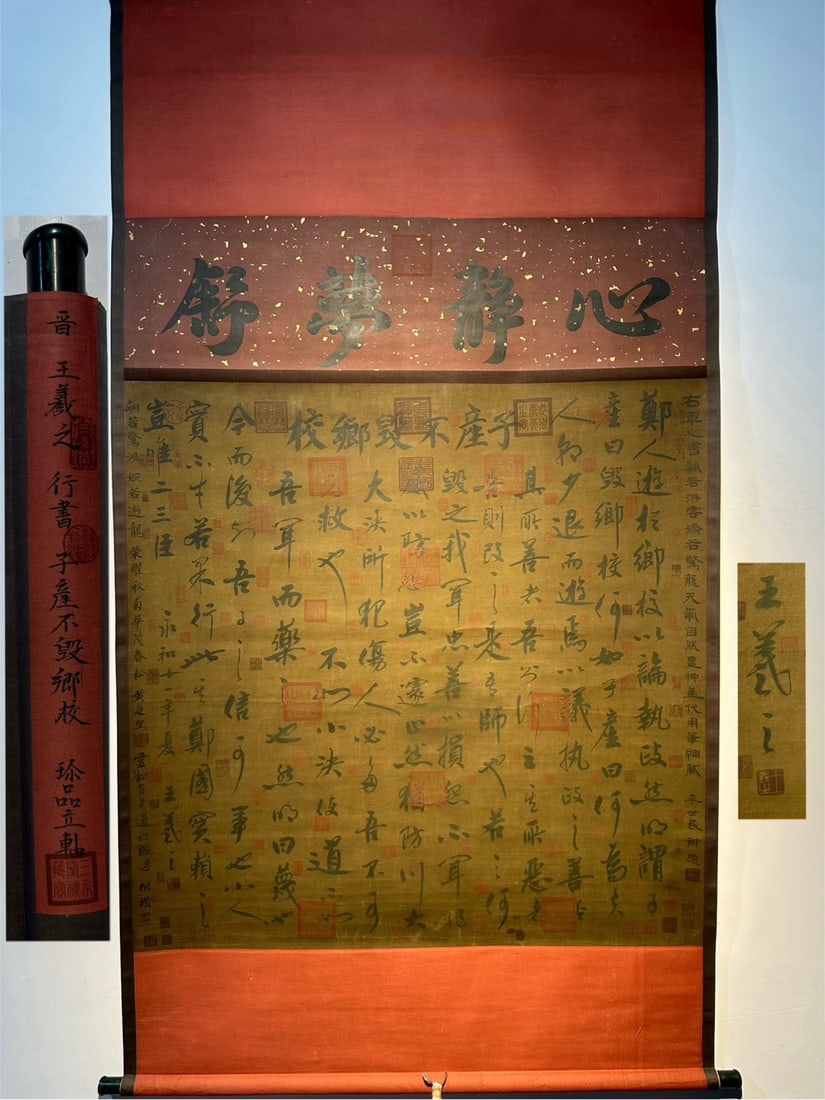 心靜夢舒
右軍之書飄若游雲矯若驚龍天氣自然豐神蓋代用筆細膩 李世民御題
子產不毀鄉校
鄭人遊於鄉校以論執政然明謂子
產曰毀鄉校何如子產曰何為夫
人朝夕退而遊焉以議執政之善否
其所善者吾則行之其所惡者
吾則改之是吾師也若之何
毀之我聞忠善以損怨不聞作
威以防怨豈不遽止然猶防川大
大決所犯傷人必多吾不可
克救也不如小決使道不如
吾聞而藥之也然明曰蔑也
今而後知吾子之信可事也小人
實不才若果行此其鄭國實賴之
豈唯二三臣 永和十一年夏 王羲之
翩若驚鴻婉若遊龍榮曜秋菊華茂春松 黃庭堅
晋 王羲之 行書 子產不毀鄉校 珍品立軸
王羲之